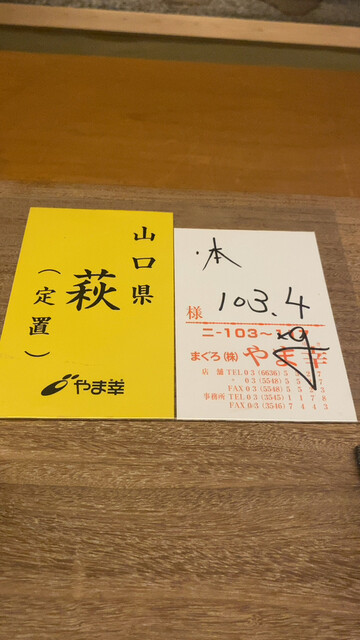 山口県
萩
(定置)
やま幸
本
103.4
様
ニ-103~
まぐろ(株)やま幸
店舗 TEL 03 (6636) 5
〃 03 (5548) 5
FAX 03 (5548) 5
事務所 TEL 03 (3545) 1178
FAX 03 (3546) 7443